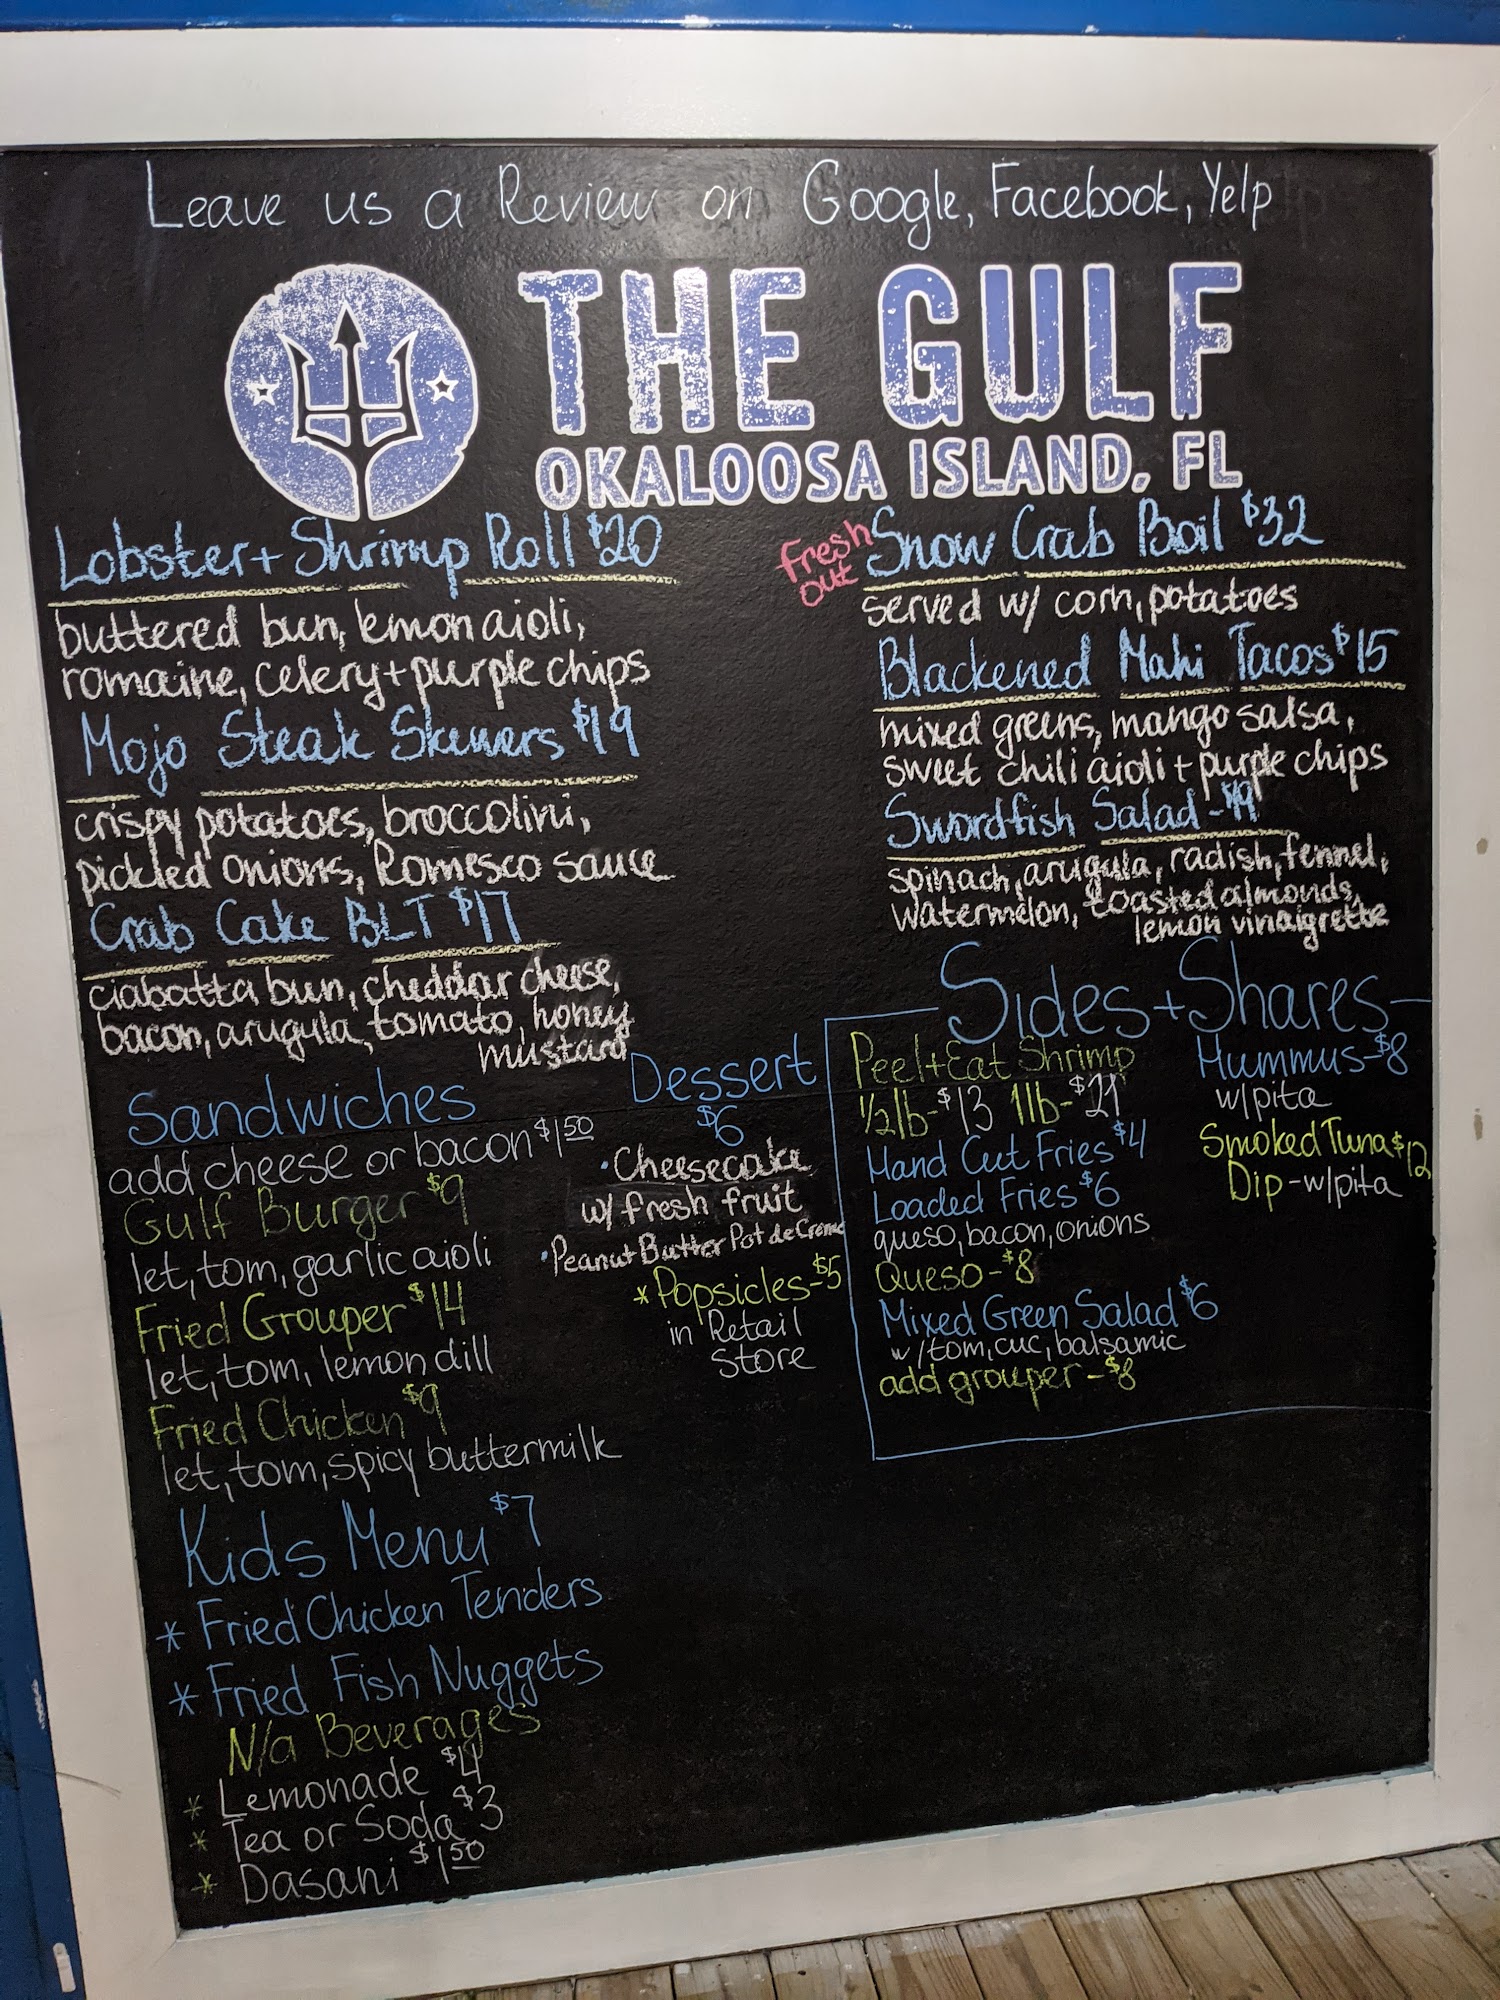 Leave us a Review on Google, Facebook, Yelp
THE GULF
OKALOOSA ISLAND, FL
Lobster + Shrimp Roll $20
buttered bun, lemon aioli,
romaine, celery + purple chips
Mojo Steak Skewers $19
crispy potatoes, broccolini,
pickled onions, Romesco sauce
Crab Cake BLT $17
ciabatta bun, cheddar cheese,
bacon, arugula, tomato, honey
mustard
Fresh
out
Snow Crab Boil $32
served w/ corn, potatoes
Blackened Mahi Tacos $15
mixed greens, mango salsa,
sweet chili aioli + purple chips
Swordfish Salad - $19
spinach, arugula, radish, fennel,
watermelon, toasted almonds,
lemon vinaigrette
Sandwiches
add cheese or bacon $1.50
Gulf Burger $9
let, tom, garlic aioli
Fried Grouper $14
let, tom, lemon dill
Fried Chicken $9
let, tom, spicy buttermilk
Kids Menu $7
* Fried Chicken Tenders
* Fried Fish Nuggets
N/a Beverages
* Lemonade $4
* Tea or Soda $3
* Dasani $1.50
Dessert
$6
• Cheesecake
w/ fresh fruit
• Peanut Butter Pot de Creme
* Popsicles - $5
in Retail
Store
Sides + Shares
Peel + Eat Shrimp
1/2 lb - $13 1 lb - $21
Hand Cut Fries $4
Loaded Fries $6
queso, bacon, onions
Queso - $8
Mixed Green Salad $6
w/ tom, cuc, balsamic
add grouper - $8
Hummus - $8
w/pita
Smoked Tuna $12
Dip - w/pita